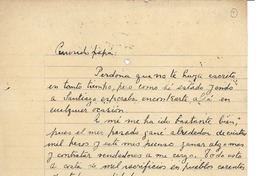 1
Querido papá:
Perdona que no te haya escrito
en tanto tiempo, pero como he estado yendo
a Santiago esperaba encontrarte allá en
cualquier ocasión.
A mí me ha ido bastante bien,
pues el mes pasado gané alrededor de
mil pesos y este mes pienso ganar algo más
y contratar vendedores a mi cargo. Todo esto
a costa de mil sacrificios en pueblos carentes